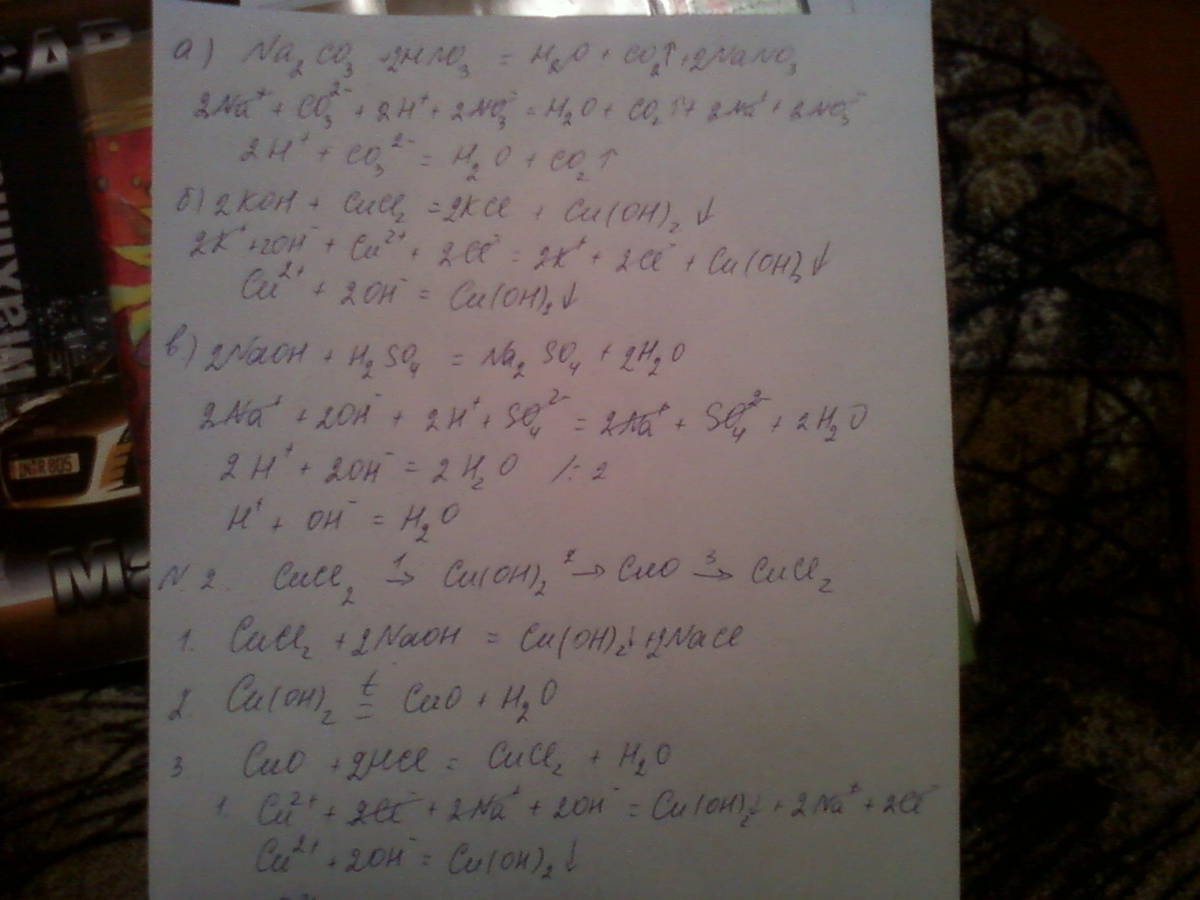 а) Na₂CO₃ + 2HNO₃ = H₂O + CO₂↑ + 2NaNO₃
2Na⁺ + CO₃²⁻ + 2H⁺ + 2NO₃⁻ = H₂O + CO₂↑ + 2Na⁺ + 2NO₃⁻
2H⁺ + CO₃²⁻ = H₂O + CO₂↑
б) 2KOH + CuCl₂ = 2KCl + Cu(OH)₂↓
2K⁺ + 2OH⁻ + Cu²⁺ + 2Cl⁻ = 2K⁺ + 2Cl⁻ + Cu(OH)₂↓
Cu²⁺ + 2OH⁻ = Cu(OH)₂↓
в) 2NaOH + H₂SO₄ = Na₂SO₄ + 2H₂O
2Na⁺ + 2OH⁻ + 2H⁺ + SO₄²⁻ = 2Na⁺ + SO₄²⁻ + 2H₂O
2H⁺ + 2OH⁻ = 2H₂O /: 2
H⁺ + OH⁻ = H₂O
N 2. CuCl₂ 1→ Cu(OH)₂ 2→ CuO 3→ CuCl₂
1. CuCl₂ + 2NaOH = Cu(OH)₂↓ + 2NaCl
2. Cu(OH)₂ t= CuO + H₂O
3 CuO + 2HCl = CuCl₂ + H₂O
1. Cu²⁺ + 2Cl⁻ + 2Na⁺ + 2OH⁻ = Cu(OH)₂↓ + 2Na⁺ + 2Cl⁻
Cu²⁺ + 2OH⁻ = Cu(OH)₂↓